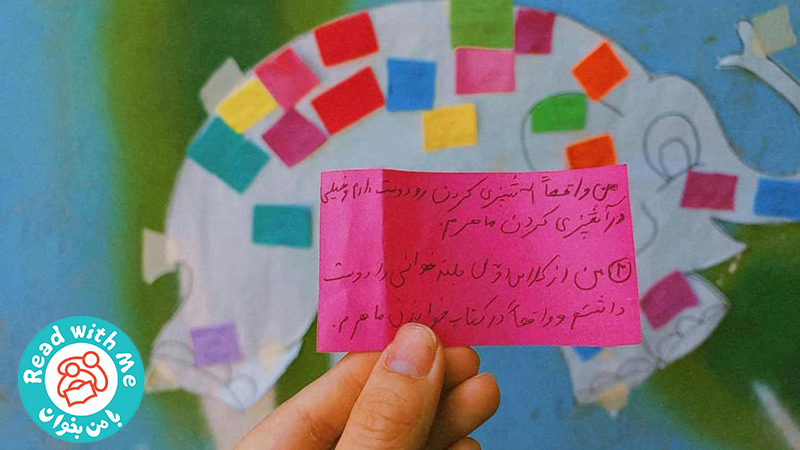 من واقعاً آشپزی کردن رو دوست دارم و خیلی
در آشپزی کردن ماهرم.
۲ من از کلاس اوّل بلندخوانی را دوست
داشتم و واقعاً در کتاب خواندن ماهرم.
Read with Me
با من بخوان